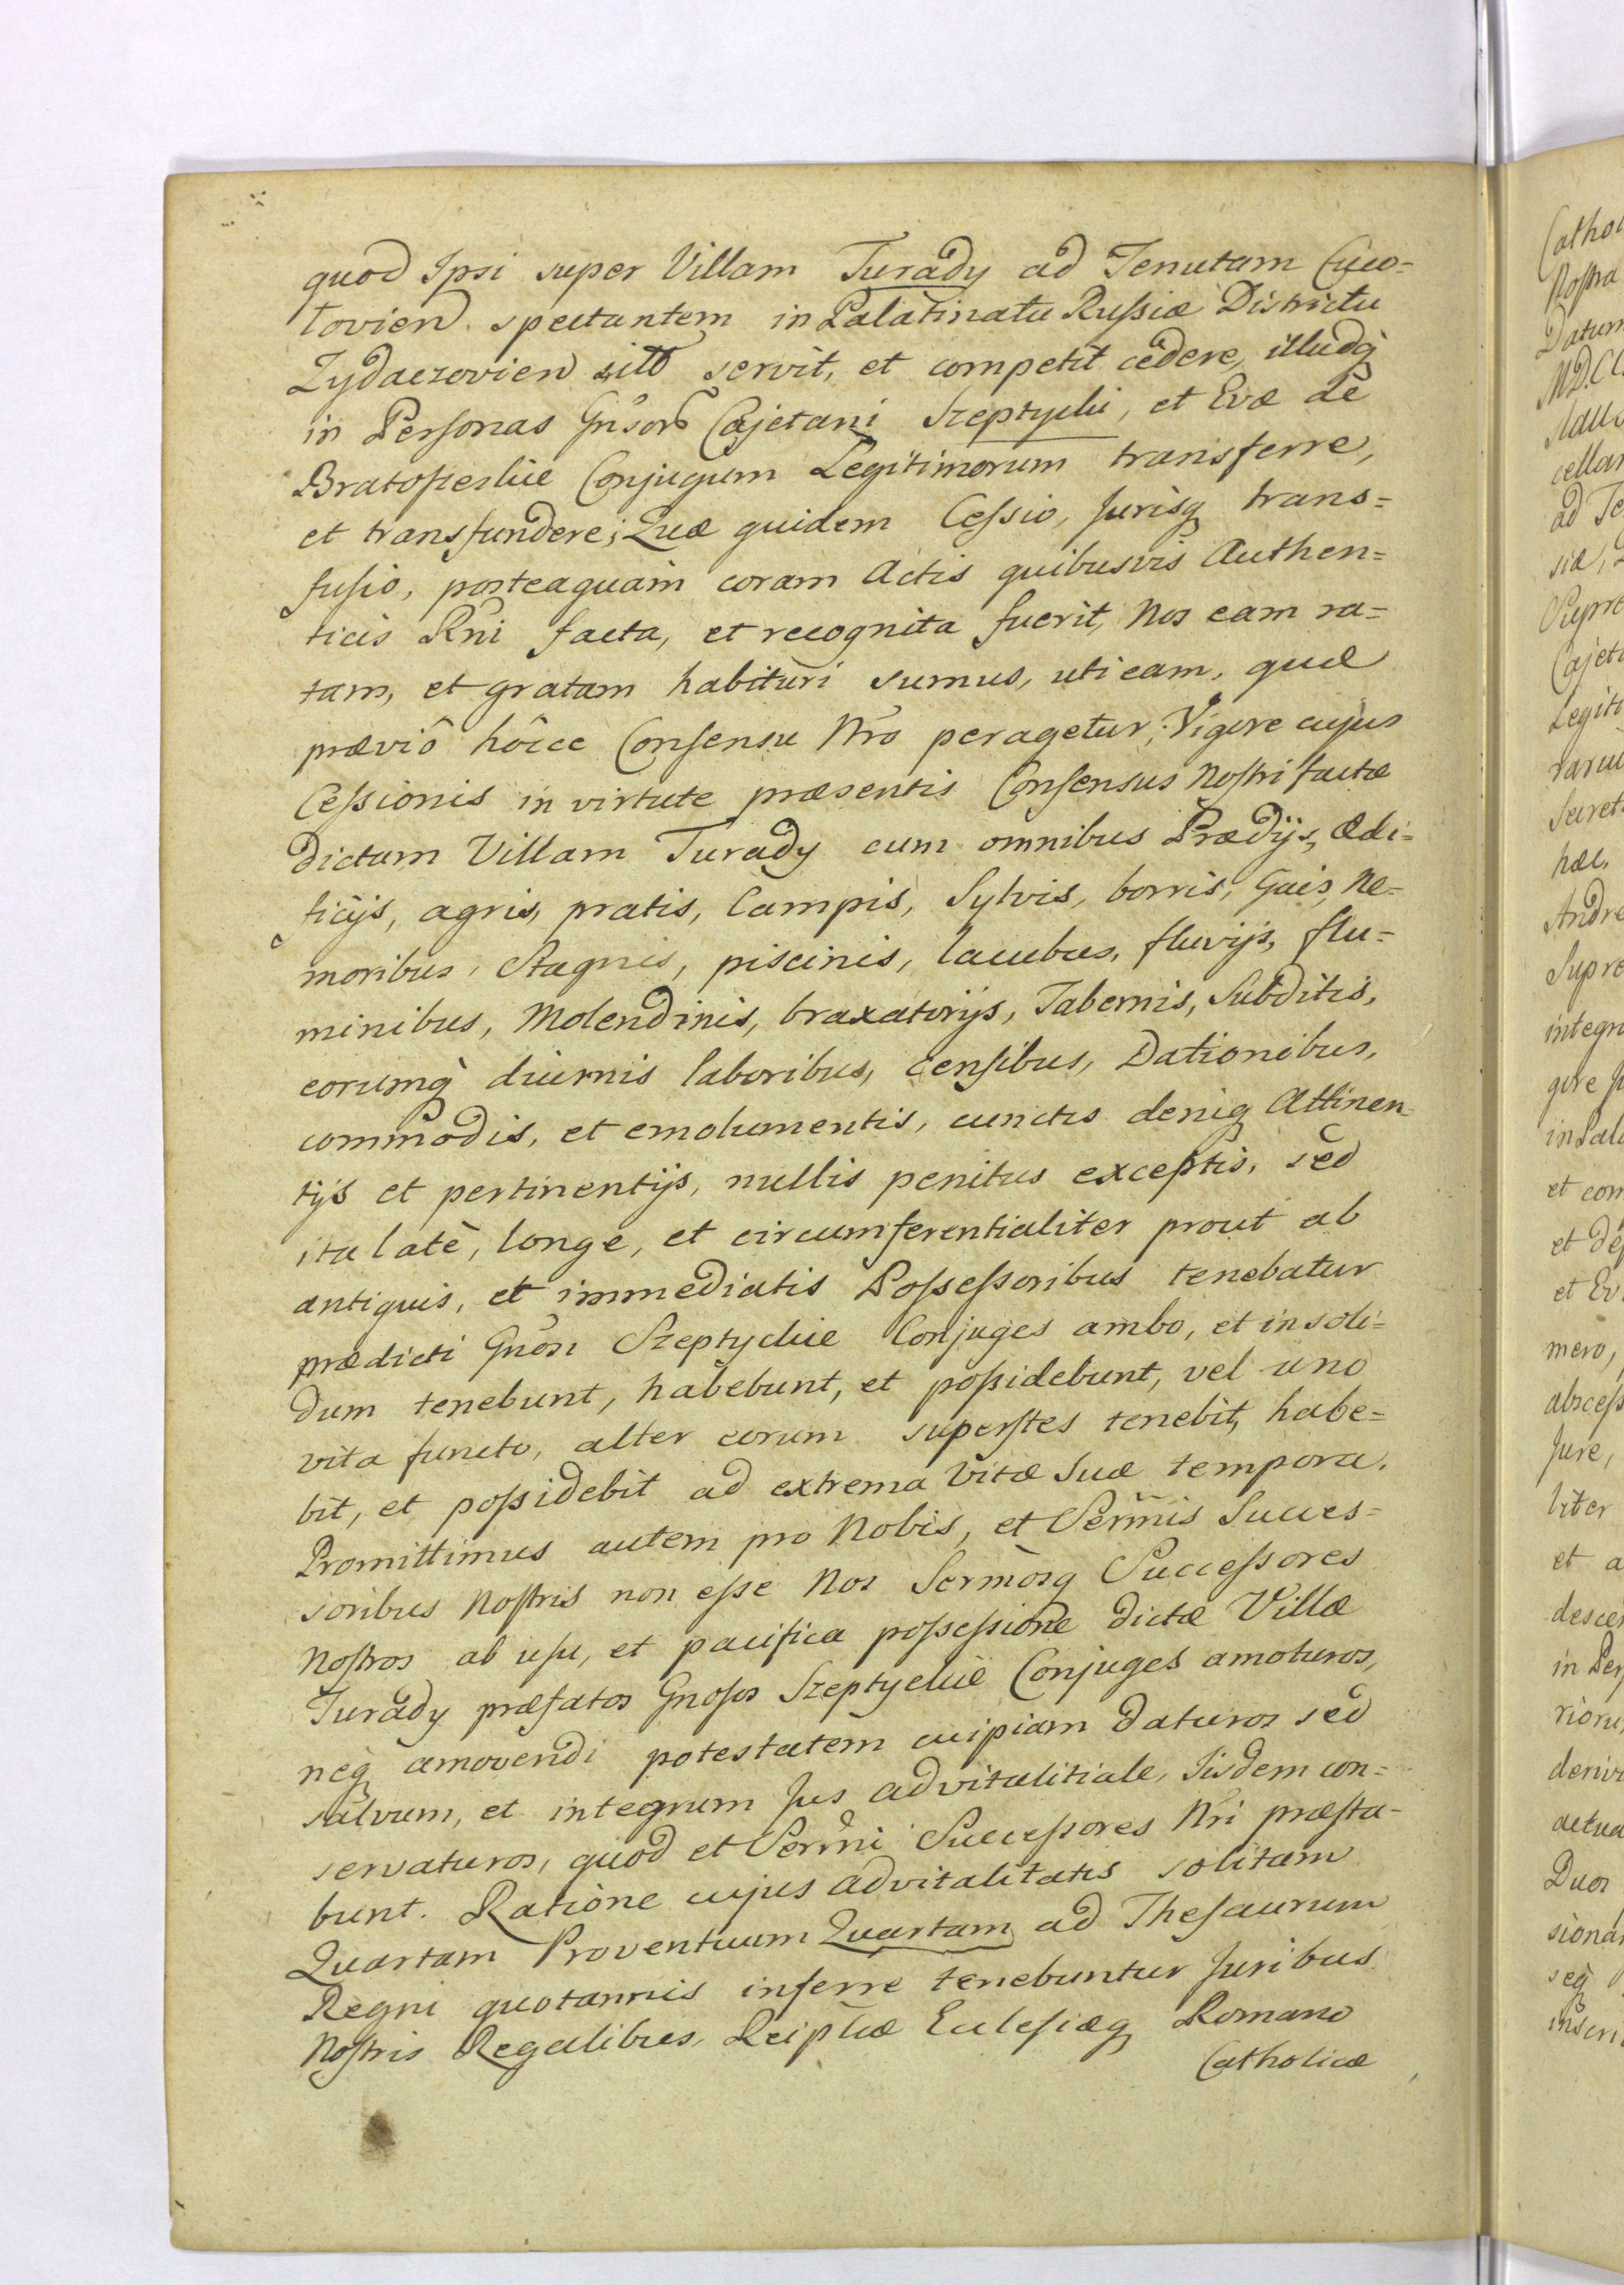 quod Ipsi super Villam Turady ad Tenutam Cuco-
lovien. spectantem in Palatinatu Russiæ Districtu
Zydaczovien sitt servit, et competit cedere, illudq
in Personas Gnsor Cajetani Szeptycki, et Evæ de
Bratoszeskie Conjugum Legitimorum transferre,
et transfundere; Quæ quidem Cessio, Jurisq trans=
fusio, posteaquam coram Actis quibusvis Authen=
ticis Rni facta, et recognita fuerit, Nos eam ra=
tam, et gratam habituri sumus, uti eam, quæ
præviô hôcce Consensu Nro peragetur; Vigore cujus
Cessionis in virtute præsentis Consensus Nostri factæ
dictam Villam Turady cum omnibus Prædijs, Ædi=
ficijs, agris, pratis, Campis, Sylvis, borris, Gais, Ne=
moribus, Stagnis, piscinis, lacubus, fluvijs, flu=
minibus, Molendinis, braxatorijs, Tabernis, Subditis,
eorumq diurnis laboribus, censibus, Dationibus,
commodis, et emolumentis, cunctis deniq Attinen-
tijs et pertinentijs, nullis penitus exceptis, sed
ita latè, longe, et circumferentialiter prout ab
antiquis, et immediatis Possessoribus tenebatur
prædicti Gnosi Szeptyckie Conjuges ambo, et in soli=
dum tenebunt, habebunt, et possidebunt, vel uno
vita functo, alter eorum superstes tenebit, habe=
bit, et possidebit ad extrema Vitæ Suæ tempora.
Promittimus autem pro Nobis, et Sermis Succes=
soribus Nostris non esse Nos Sermosq Successores
Nostros ab usu, et pacifica possessione dictæ Villæ
Turady præfatos Gnosos Szeptyckie Conjuges amoturos,
neq amovendi potestatem cuipiam daturos sed
salvum, et integrum Jus advitalitiale, Iisdem con=
servaturos, quod et Sermi Successores Nri præsta-
bunt. Ratione cujus advitalitatis solitam
Quartam Proventuum Quartam ad Thesaurum
Regni quotannis inferre tenebuntur Juribus
Nostris Regalibus, Reiplicæ Eclesiæq Romano
Catholicæ